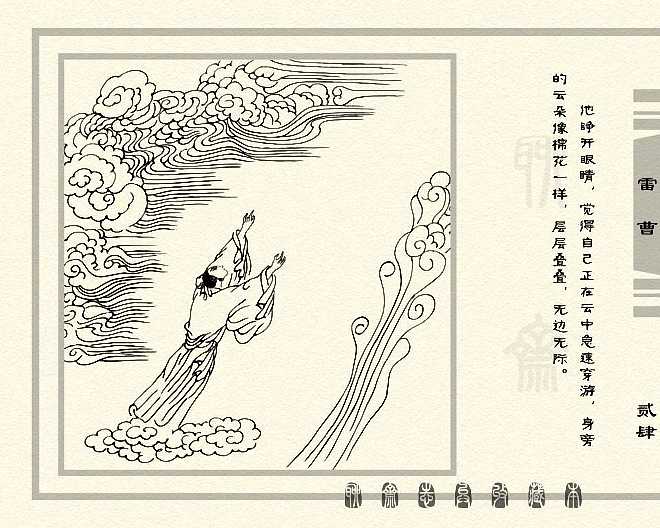 他睁开眼睛，觉得自己正在云中急速穿游，身旁
的云朵像棉花一样，层层叠叠，无边无际。
雷曹
贰肆